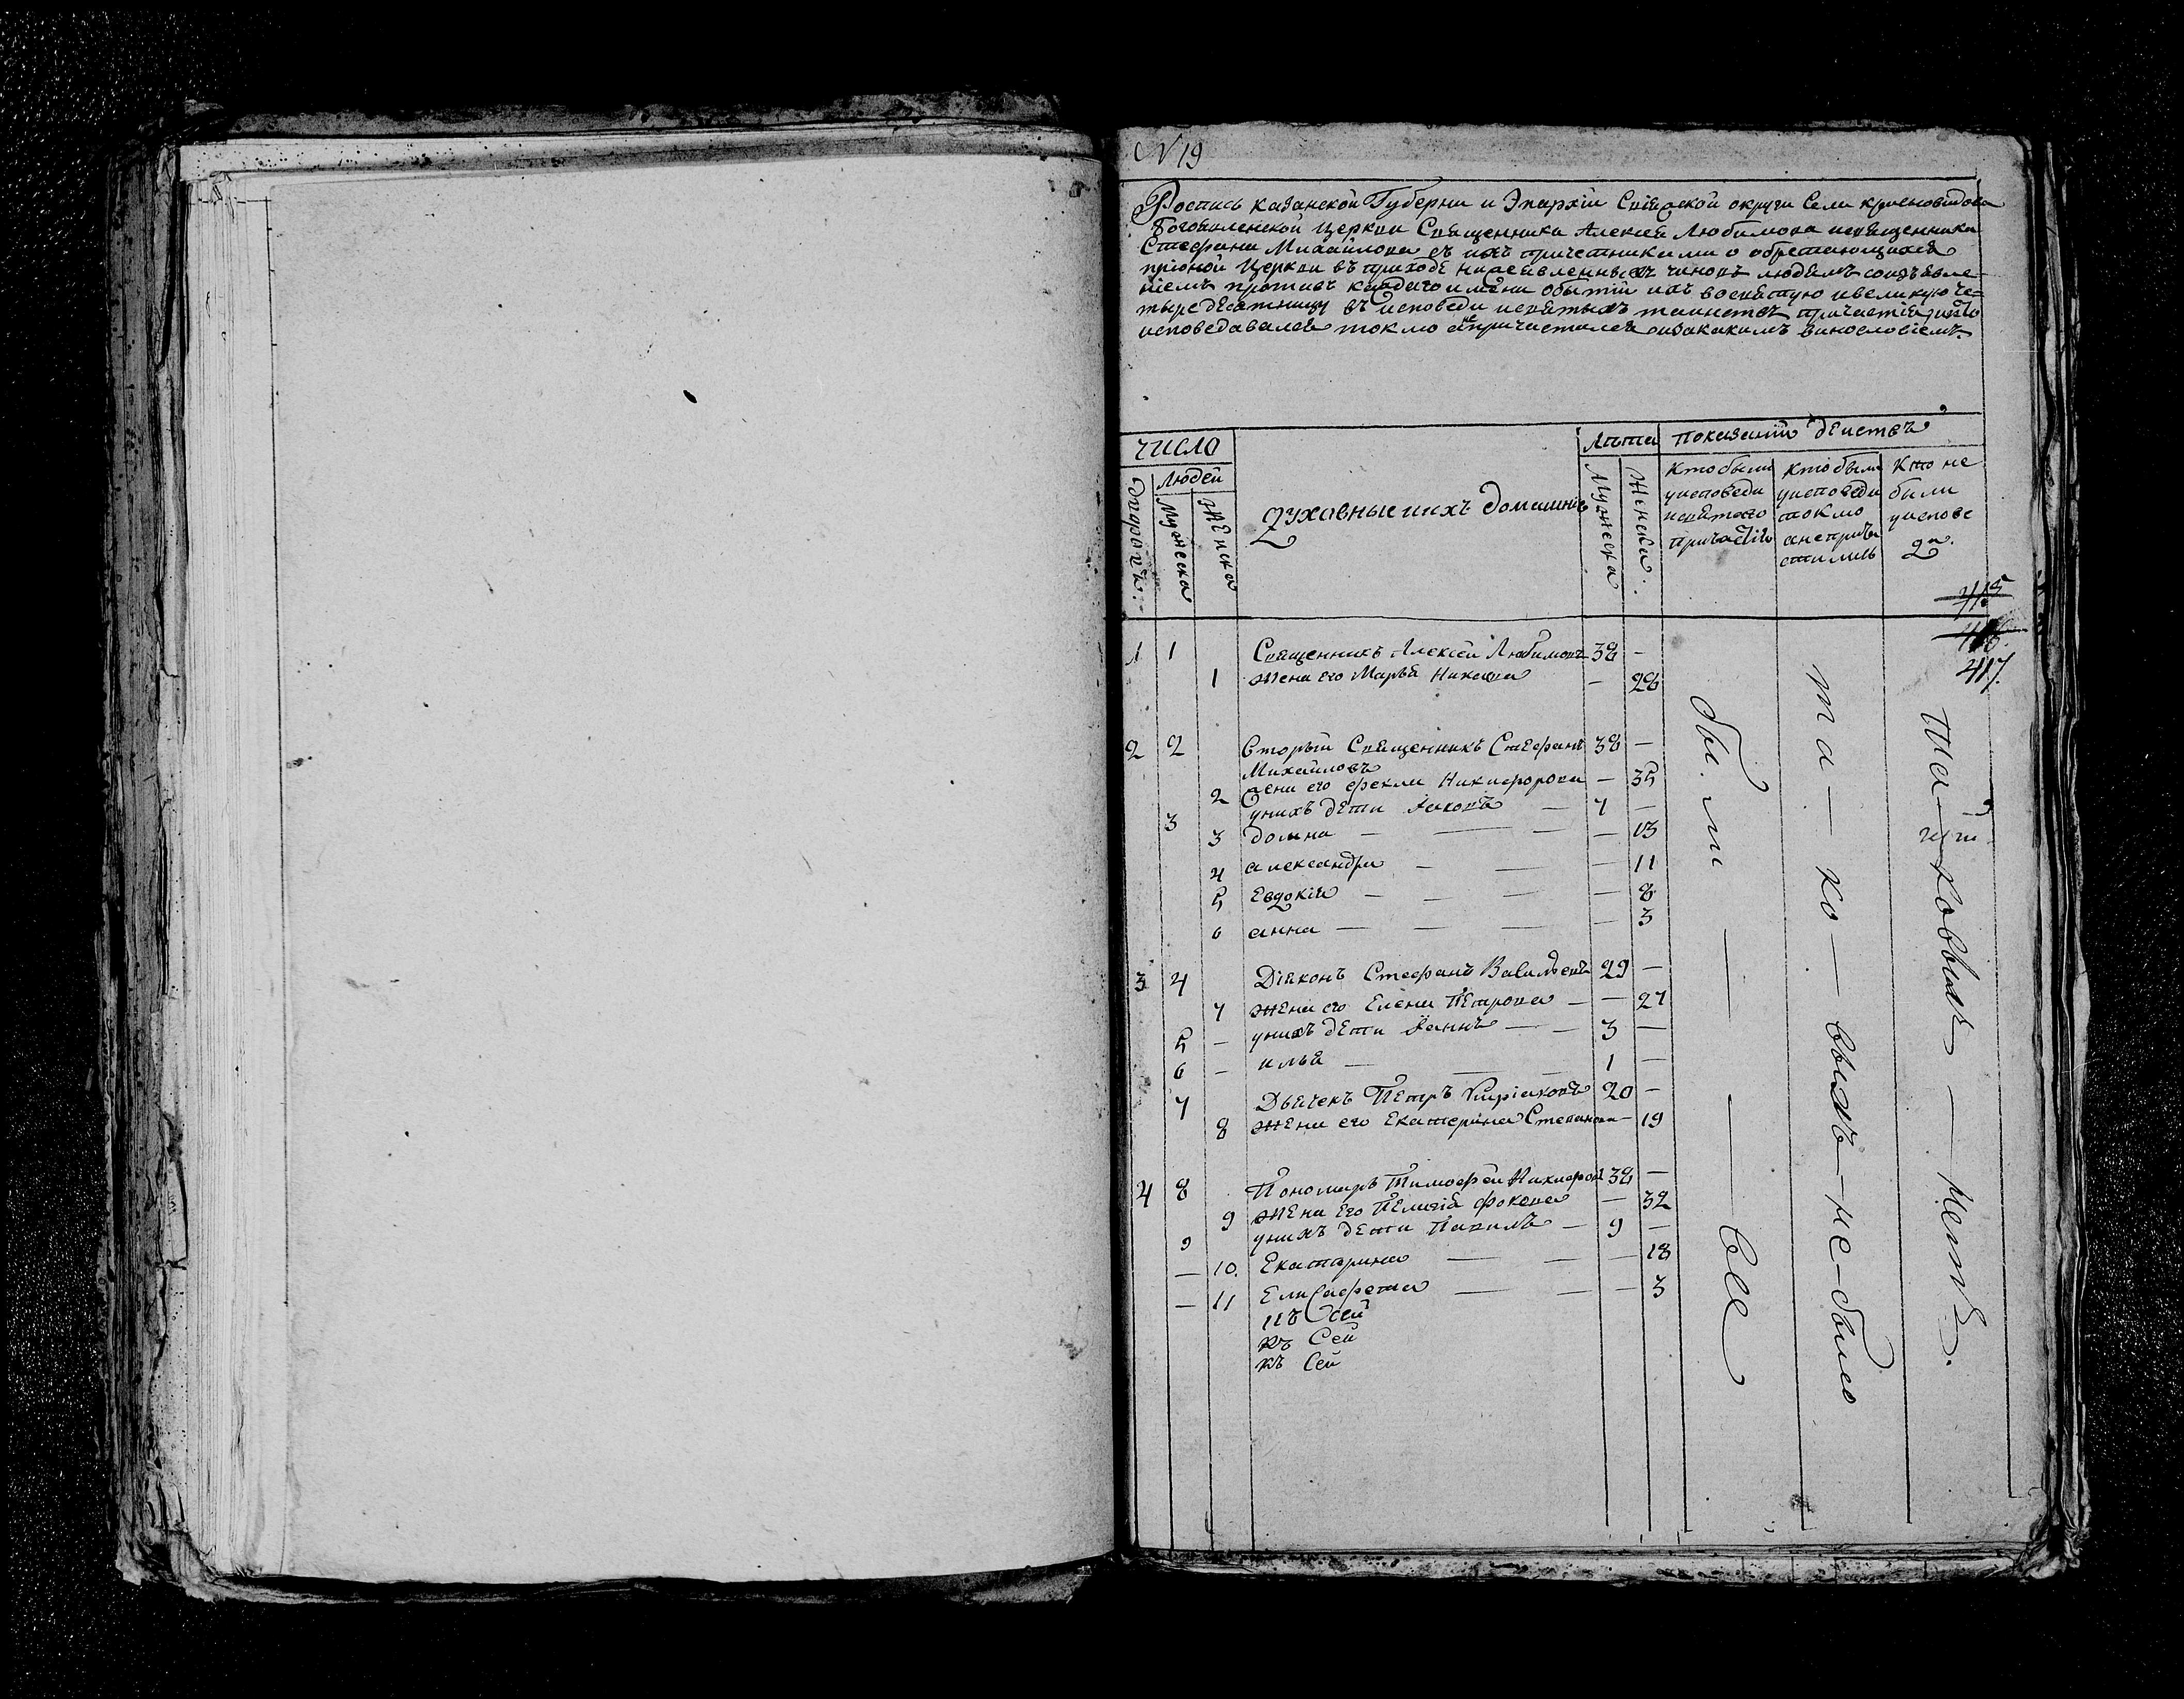 N 19
Роспись казанской Губерни и Эпархіи Свіяской округи Села красновидова
Богоявленской Церкви Священника Алексея Любимова исвященника
Стефана Михайлова съ ихъ причетниками о обретающихся
прионой Церкви въ приходе нижеявленныхъ чиновъ людяхъ соизъявле-
ніемъ противъ каждаго имени обытіи ихъ восвятую ивеликую че-
тыредесятницу въ исповеди исвятыхъ таинствъ причастія икто
исповедавался токмо анепричастился изакакимъ винословіемъ.
число
Людей
дворовъ.
Мужеска
женска
Духовные иихъ домашніе
Лета
Мужеска
Женска.
показаніи действъ
Кто были
уисповеди
исвятаго
причастія
кто были
уисповеди
токмо
анеприча
стились
Кто не
были
уиспове
ди.
415
416.
417.
1 1 Священникъ Алексей Любимовъ 38 -
1 жена его Марья - 28
2 2 Вторый Священникъ Стефанъ 38 -
Михайловъ
2 жена его фекла Никифорова - 35
3 унихъ дети Яковъ 7 -
3 домна - 13
4 александра - 11
5 Евдокія - 8
6 анна - 3
3 4 Діяконъ Стефанъ Васильевъ 29 -
7 жена его Елена Петрова - 27
5 - унихъ дети Іаннъ 3 -
6 - илья 1 -
7 Дьячекъ Петръ Киріаковъ 20 -
8 жена его Екатерина Степанова - 19
4 8 Пономарь Тимофей Никифоров 38 -
9 жена Его Пелагія фокова - 32
9 унихъ дети Павилъ 9 -
- 10. Екатарина - 18
- 11 Елисафета - 3
Сей
къ Сей
къ Сей
бы. ли — — все
та — ко — выхъ — не — было
Та — ковыхъ — — нетъ.